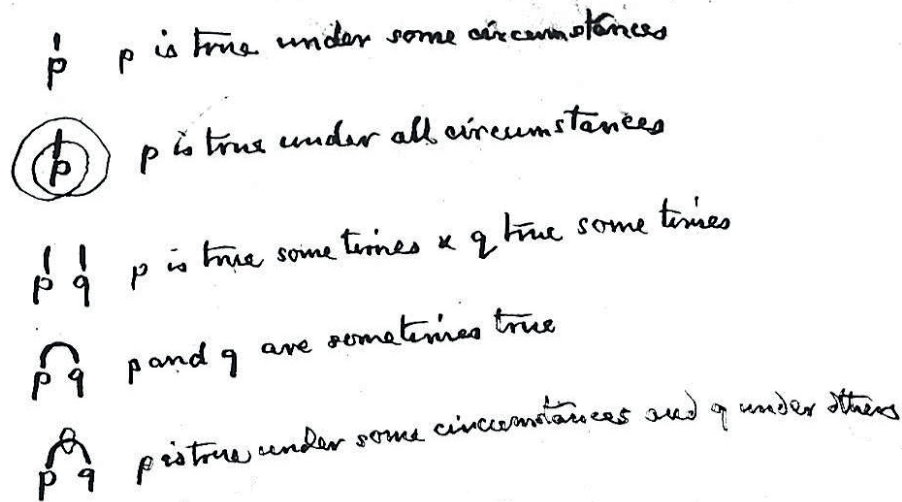 p p is true under some circumstances
p p is true under all circumstances
p q p is true some times & q true some times
p q p and q are sometimes true
p q p is true under some circumstances and q under others